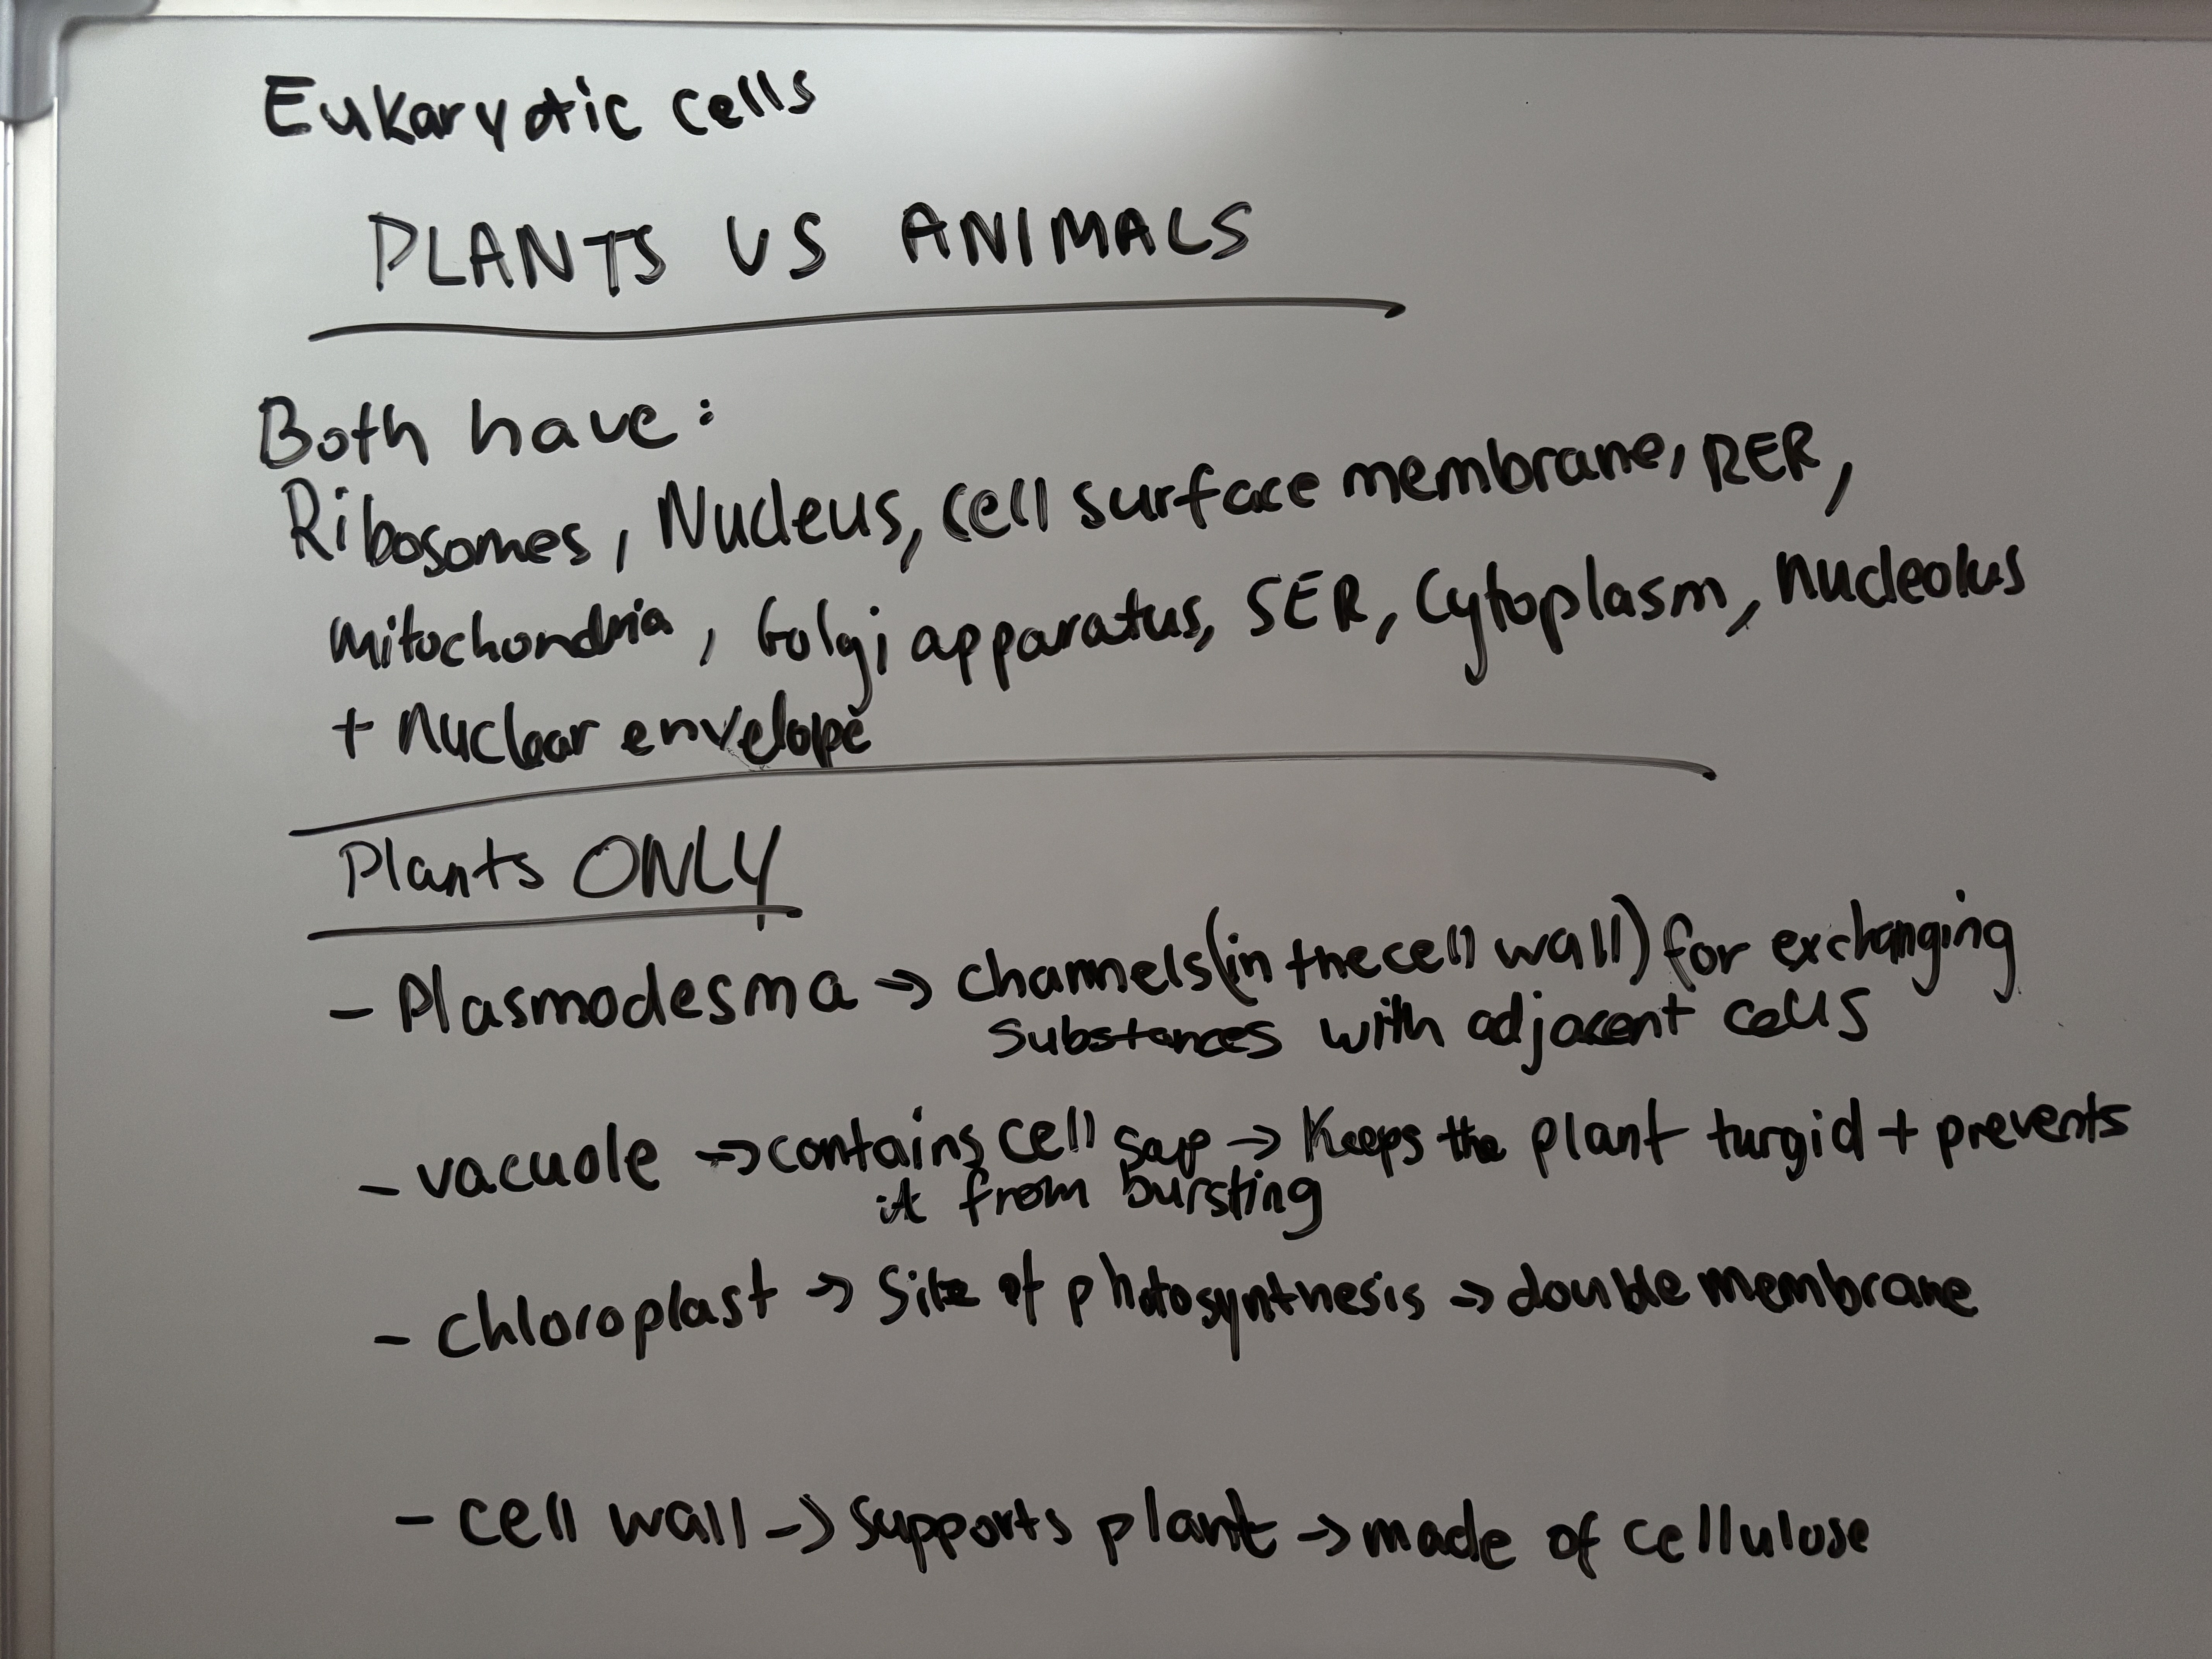 Eukaryotic cells
PLANTS VS ANIMALS
Both have:
Ribosomes, Nucleus, cell surface membrane, RER,
mitochondria, Golgi apparatus, SER, Cytoplasm, nucleolus
+ nuclear envelope
Plants ONLY
- Plasmodesma → channels (in the cell wall) for exchanging
substances with adjacent cells
- vacuole → contains cell sap → Keeps the plant turgid + prevents
it from bursting
- chloroplast → Site of photosynthesis → double membrane
- cell wall → supports plant → made of cellulose